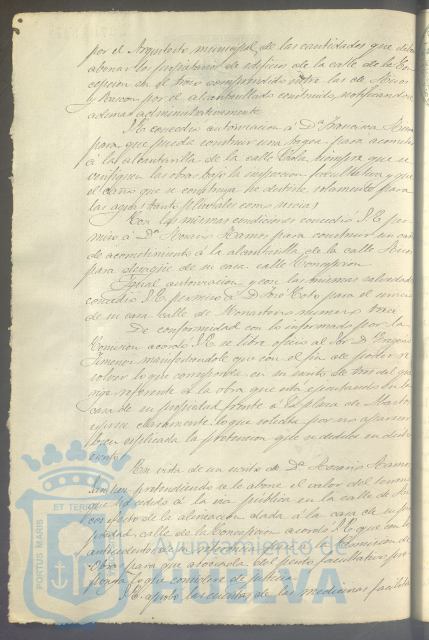 por el Arquitecto municipal de las cantidades que deben
abonar los propietarios de edificios de la calle de la Con
cepcion en el trozo comprendido entre las de
y por el alcantarillado construido, notificandose
ademas administrativamente.
S.E. concedió autorizacion á Dª Francisca
para que pueda construir una para acometer
á la alcantarilla de la calle siempre que se
verifiquen las obras bajo la inspeccion facultativa y que
el caño que se construya se destine solamente para
las aguas tanto pluviales como sucias.
Con las mismas condiciones concedió S.E. per
miso á Dn Ramos para construir un caño
de acometimiento á la alcantarilla de la calle
para desagüe de su casa calle Concepcion.
Igual autorizacion y con las mismas salvedades
concedió S.E. permiso á D. José para el
de su casa calle de Monasterio numero trece
De conformidad con lo informado por la
Comision acordó S.E. se libre oficio al Sor. D.
Jimenez manifestandole que con el fin de poder re
solver lo que corresponda en su escrito de tres del
referente á la obra que está ejecutando en la
casa de su propiedad frente á la plaza de
claramente lo que solicita por no aparecer
bien esplicada la pretension que se deduce en dicho
escrito.
En vista de un escrito de Dn Ramos
pretendiendo se le abone el valor del terreno
que ha cedido á la via pública en la calle de
con motivo de la alineacion dada á la casa de su pro
piedad, calle de la Concepcion acordó S.E. que con los
antecedentes de su referencia Comision de
Obras para que asociada del perito facultativo pro
ponga lo que considere de justicia.
S.E. aprobó las cuentas de las medicinas facilitadas
PORTUS MARIS
ET TERRAE
Ayuntamiento de
HUELVA